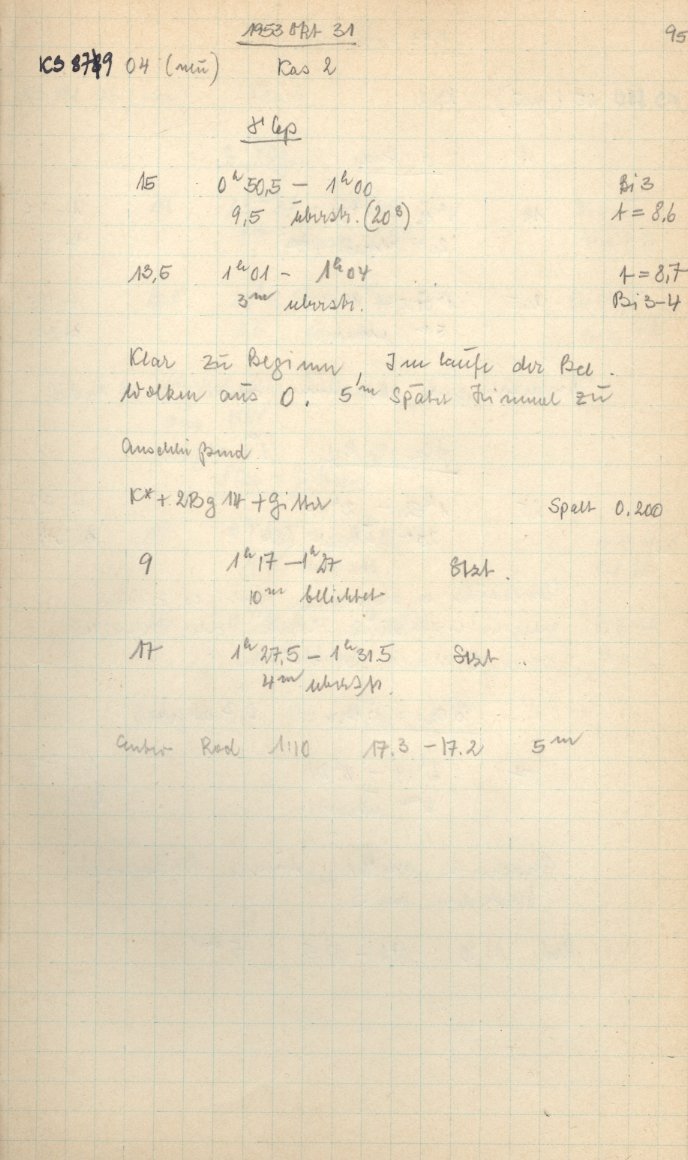 1953 Okt 31 95
KS 8789 04 (neu) Kas 2
Cep
15 0ʰ50,5 – 1ʰ00 Bi 3
9,5 überstr. (20ˢ) t = 8,6
13,5 1ʰ01 – 1ʰ04 t = 8,7
3ᵐ überstr. Bi 3-4
Klar zu Beginn, Im laufe der Bel.
Wolken aus O. 5ᵐ später Himmel zu
Anschließend
K* + 2Bg 14 + Gitter Spalt 0.200
9 1ʰ17 – 1ʰ27 Stzt.
10ᵐ belichtet
17 1ʰ27,5 – 1ʰ31.5 Stzt..
4ᵐ überstr.
Entw Rod 1:10 17.3 – 17.2 5ᵐ